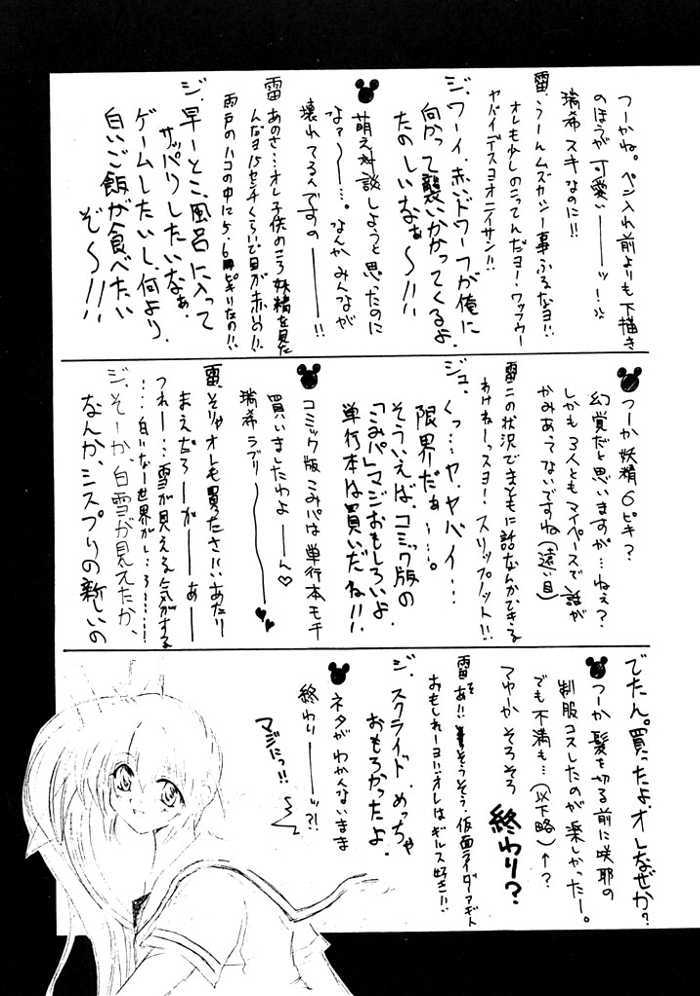 つーかね。ペン入れ前よりも下描き
のほうが可愛いーーーッ！。
瑞希スキなのに!!
雷.うーんムズカシー事ふるなヨ!!
オレも少しのこってんだヨー！ワップウー
ヤバイデスヨオニイサン!!
ジ.ワーイ.赤いドワーフが俺に
向かって襲いかかってくるよ.
たのしいなぁ〜!!
萌え対談しようと思ったのに
なァ〜〜…。なんかみんなが
壊れてるんですの———!!
雷 あのさ…オレ子供のころ妖精を見た
んだヨ15センチくらいで目が赤い!!
雨戸のハコの中に5.6ピキいたの!!
ジ.早ーとこ風呂に入って
サッパリしたいなぁ.
ゲームしたいし.何より.
白いご飯が食べたい
ぞ〜!!
つーか妖精6ピキ？
幻覚だと思いますが…ねえ？
しかも3人ともマイペースで話が
かみあってないですね(遠い目)
雷この状況でまともに話なんかできる
わけねーっスよ！スリップノット!!
ジュ.
くっ…ヤ、ヤバイ…
限界だぁ———…。
そういえば、コミック版の
「こみパ」マジおもしろいよ.
単行本は買いだね!!
コミック版こみパは単行本モチ
買いましたわよ———ん♡
瑞希ラブリ————
雷.そりゃオレも買ったさ!!いあたり
まえだろーがーーあーー
つれー…雪が見える気がする
…白いなー世界がし…ろ……
ジ.そーか、白雪が見えたか、
なんか、シスプリの新しいの
でたん。買ったよ.オレなぜか？
つーか髪を切る前に咲耶の
制服コスしたのが楽しかったー。
でも不満も…(以下略)←？
てゆーかそろそろ
終わり？
雷を あ!!そうそう.仮面ライダーアギト
おもしれーヨ!!オレはギルス好き!!
ジ.スクライド.めっちゃ
おもろかったよ.
ネタがわかんないまま
終わり———ッ?!
マジにっ!!